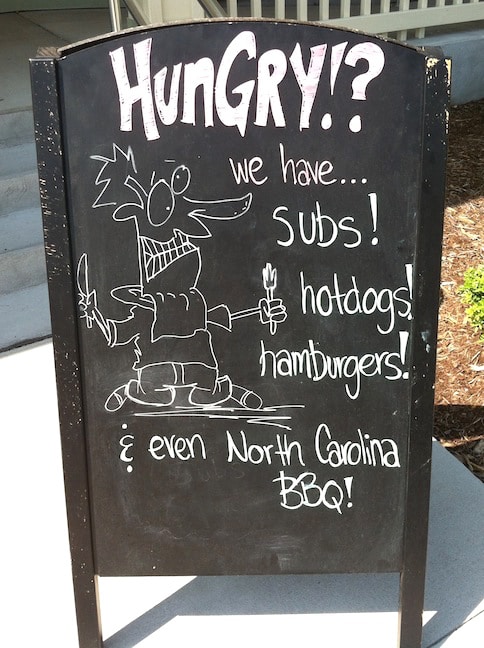 HunGRY!?
we have...
subs!
hotdogs!
hamburgers!
& even North Carolina
BBQ!